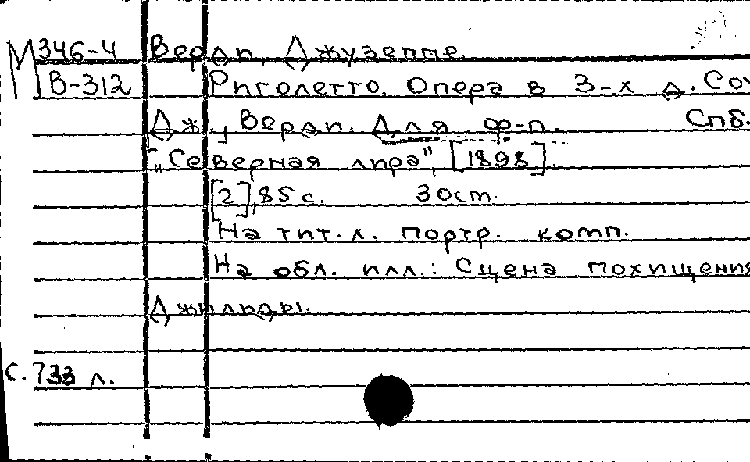 М346-4 Верди, Джузеппе.
В-312 Риголетто. Опера в 3-х д. Соч
Дж. Верди. Для ф-п. Спб.
"Северная лира", [1898].
[2], 85 с. 30 ст.
На тит. л. портр. комп.
На обл. илл.: Сцена похищения
Джильды.
с. 733 л.